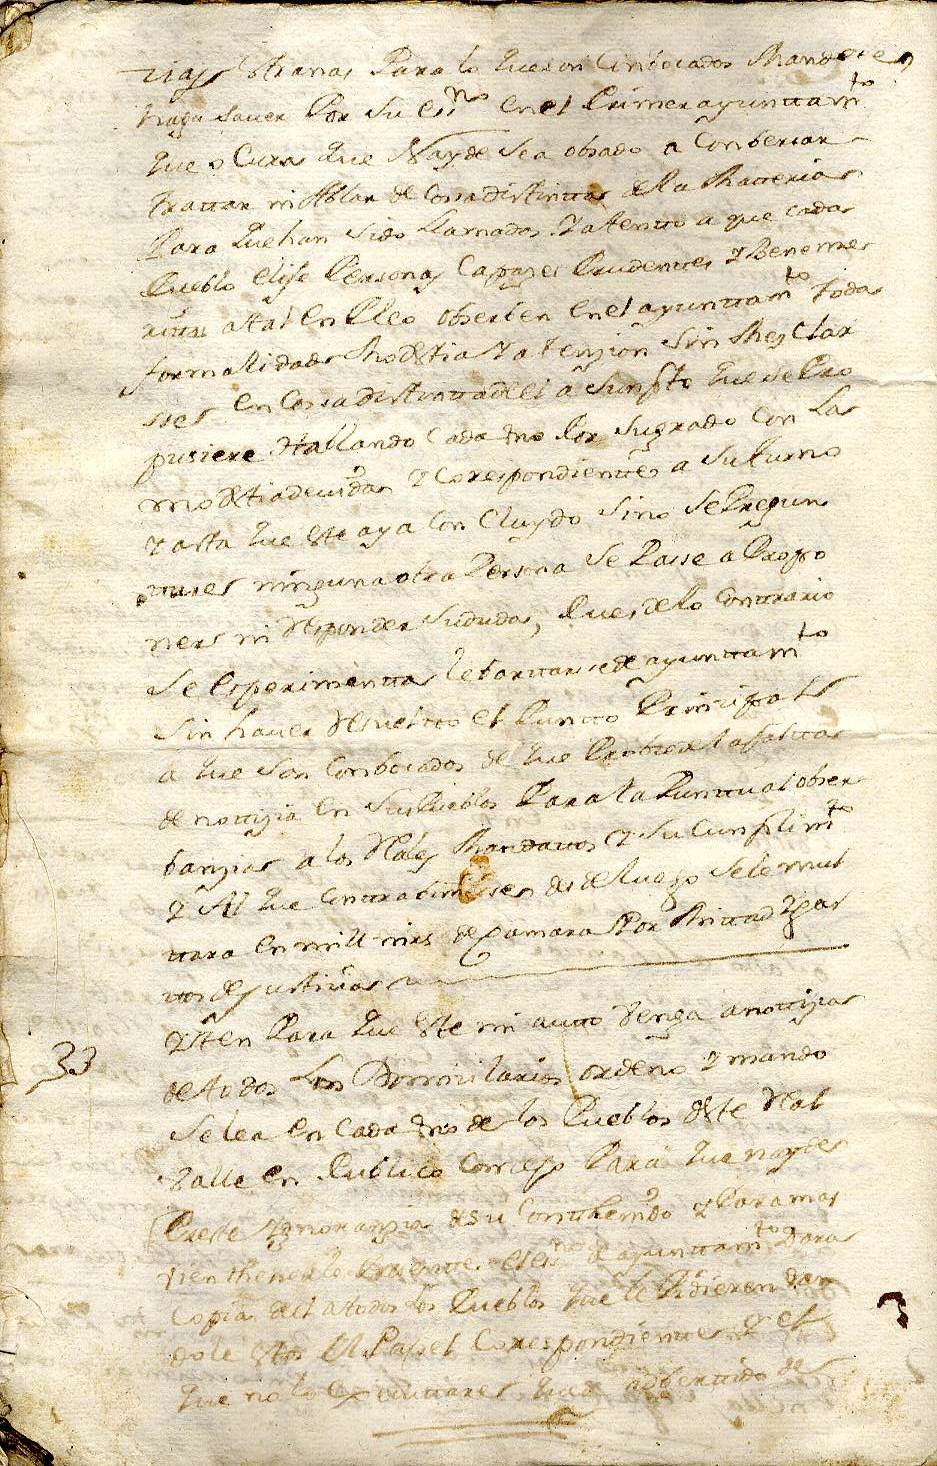 rias estranas Para lo que son Conbocados Mando se
haga saver Por su essno en el Primer ayunttamto
que o Cura que Nayde sea obsado a Conbersar
trattar ni Ablar de Cossa distinttas de la Matterias
Para que han sido llamados Y atentto a que cada
Pueblo elise Personas Capazes Prudentes Y Beneme
rittas a tal enPleo obserben en el ayunttamto todas
formalidades Modestia Y atenzion sin Mezclar
sses en Cossa distintta de el asunpto que se Pro
pusiere Hallando Cada vno Por su grado con las
modestia devidas Y Corespondientte a su turno
Y asta que este aya Concluydo sino se Pregun
ttares ninguna otra Persona se Passe a Propo
ners ni Responder su dudas, Pues de lo Conttrario
se esperimentta lebanttarse de ayunttamto
sin haver Resueltto el Puntto Principals
a que son Conbocados de que Probiene la falttas
de nottizia en sus Pueblos Para la Punttual obser
banzias a los Rales Mandattos Y su Cunplimto
Y Al que Conttrabinieses desde luego se le mul
ttara en mill mrs de Camara Por Mittad Y gas
ttos de Justizias
Ytten Para que este mi autto Venga a nottizias
33
de todos los Domizilarios ordeno Y mando
se lea en Cada vno de los Pueblos deste Ral
Valle en Publico Concejo Para que naydes
Prette Ygnoranzia de su Conthenido Y Para mas
vien thenerlo Presentte el essno de ayunttamto Daras
Copia del a todos los Pueblos que le Pidieren dan
dole estos el Papel Corespondientte Y el
que no lo executtares quede adberttido de